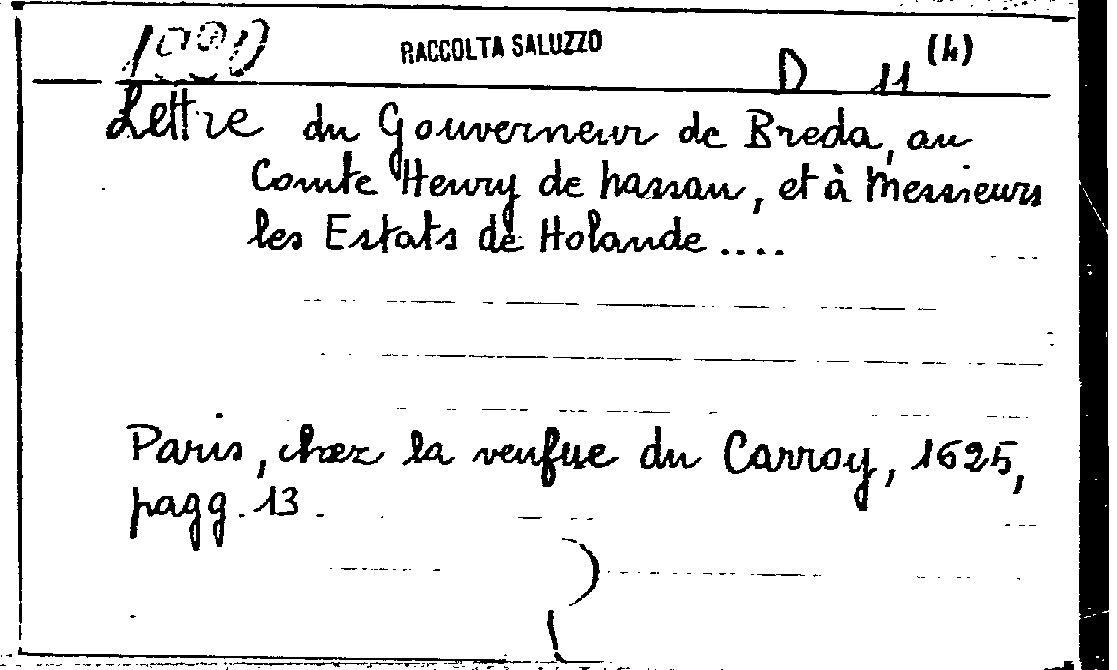 RACCOLTA SALUZZO
D 11 (h)
Lettre du Gouverneur de Breda, au
Comte Henry de Nassau, et à Messieurs
les Estats de Holande ....
Paris, chez la veufue du Carroy, 1625,
pagg. 13.